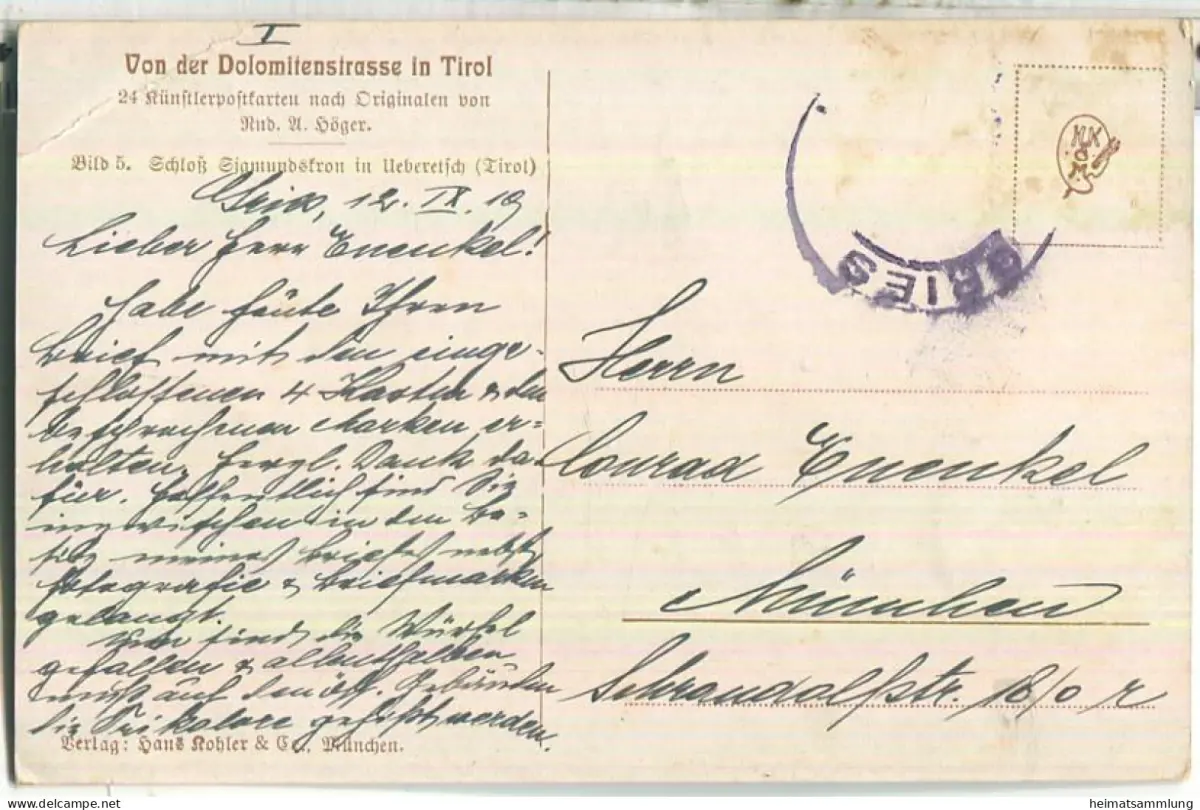 I
Von der Dolomitenstrasse in Tirol
24 Künstlerpostkarten nach Originalen von
Rud. A. Höger.
Bild 5. Schloß Sigmundskron in Ueberetsch (Tirol)
Gries, 12. IX. 19
Lieber Herr Enenkel!
Habe heute Ihren
Brief mit den einge-
schlossenen 4 Karten & den
besprochenen Marken er-
halten. Hergl. Dank da-
für. Hoffentlich sind Sie
inzwischen in den Be-
sitz meines Briefes nebst
Fotografie & Briefmarken
gelangt.
Nun sind die Würfel
gefallen & allenthalben
muß auf den öff. Gebäuden
die Trikolore gehißt werden.
Verlag: Hans Kohler & Co., München.
GRIES
HK
&
Co
M
Herrn
Conrad Enenkel
München
Schraudolfstr. 18/0 r
heimatsammlung